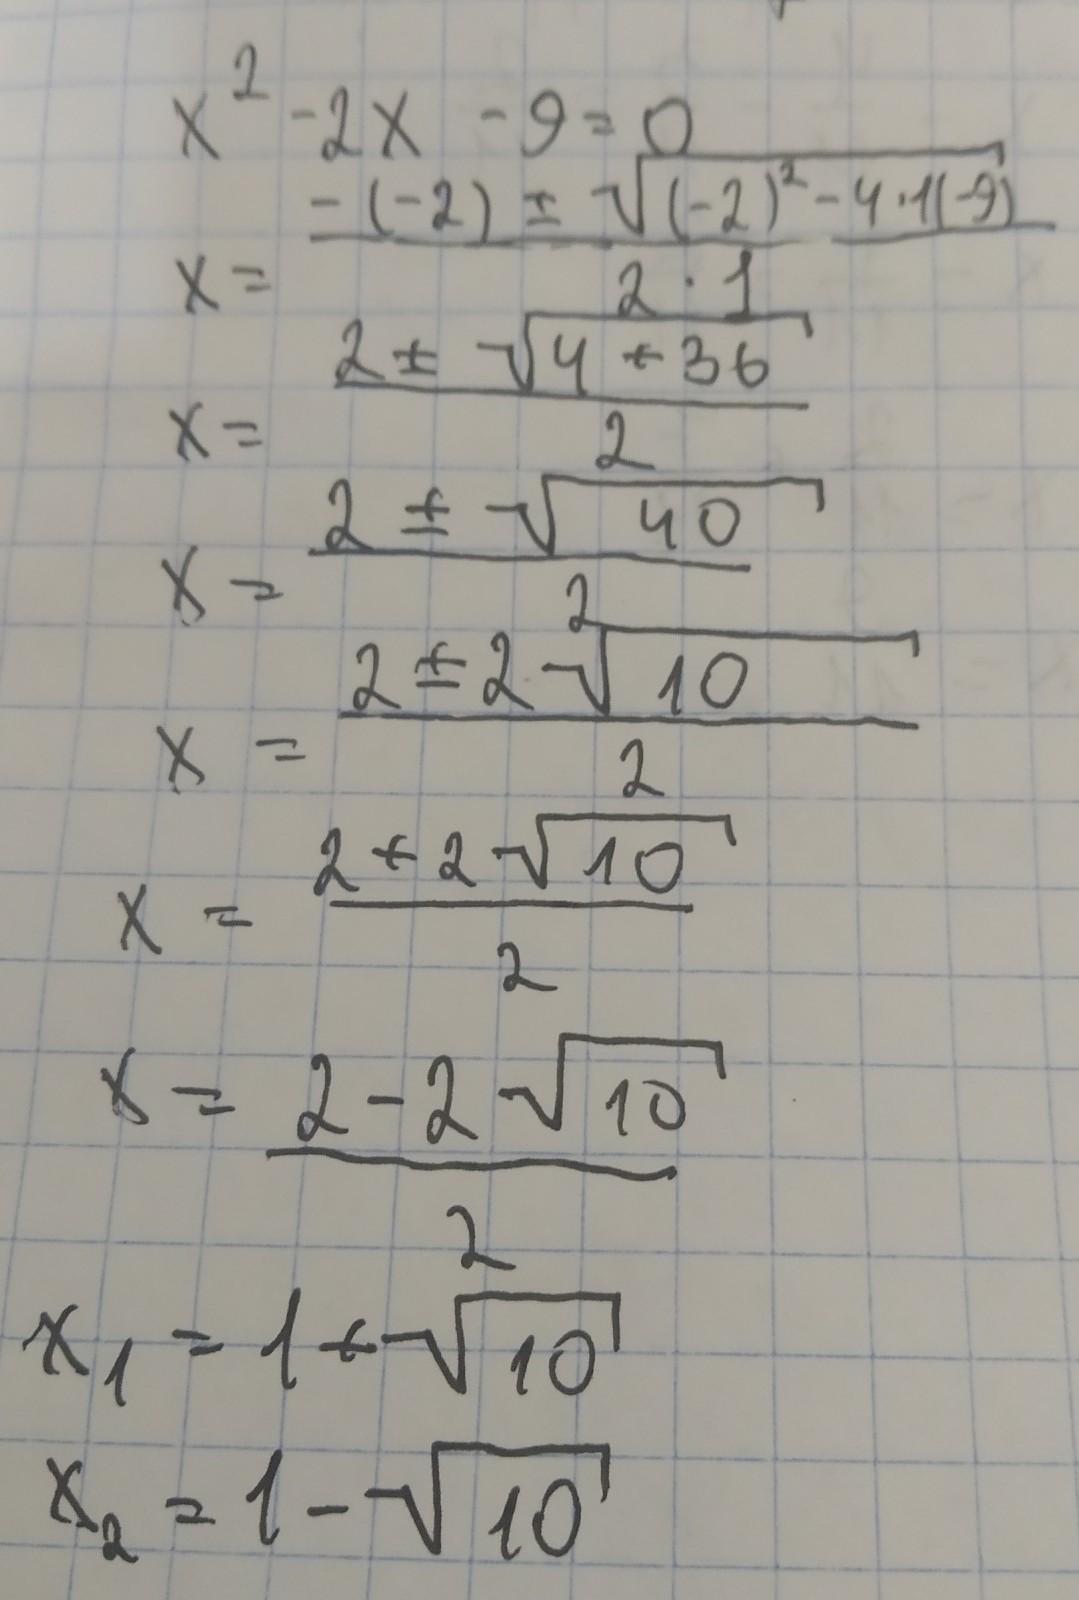 x² - 2x - 9 = 0
x = (-(-2) ± √((-2)² - 4·1(-9))) / (2·1)
x = (2 ± √(4 + 36)) / 2
x = (2 ± √40) / 2
x = (2 ± 2√10) / 2
x = (2 + 2√10) / 2
x = (2 - 2√10) / 2
x₁ = 1 + √10
x₂ = 1 - √10